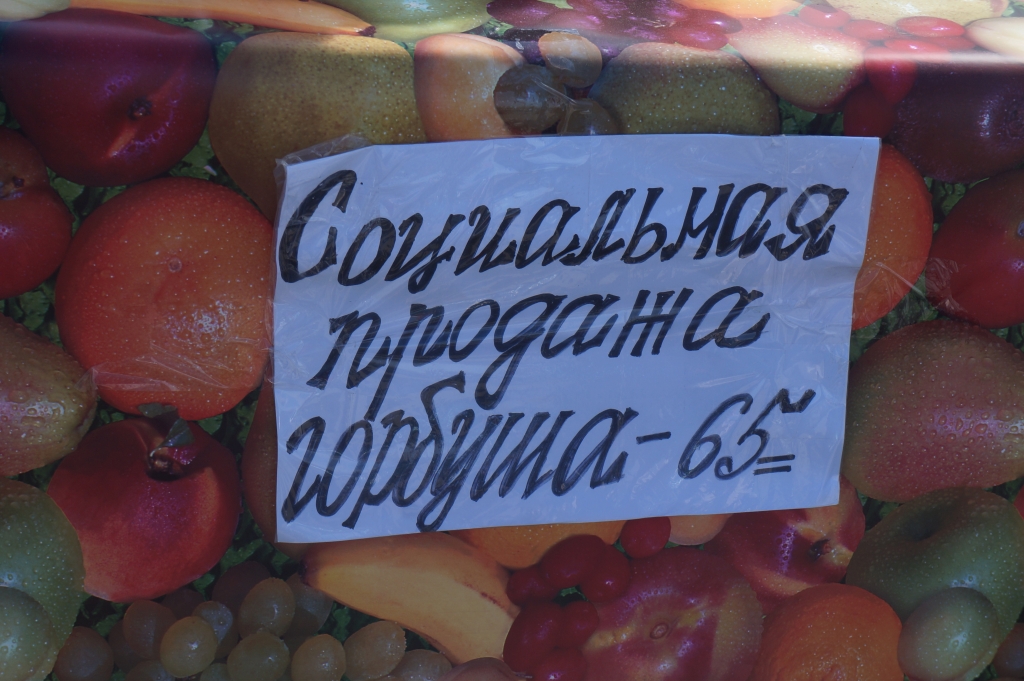 Социальная
продажа
горбуша - 65=